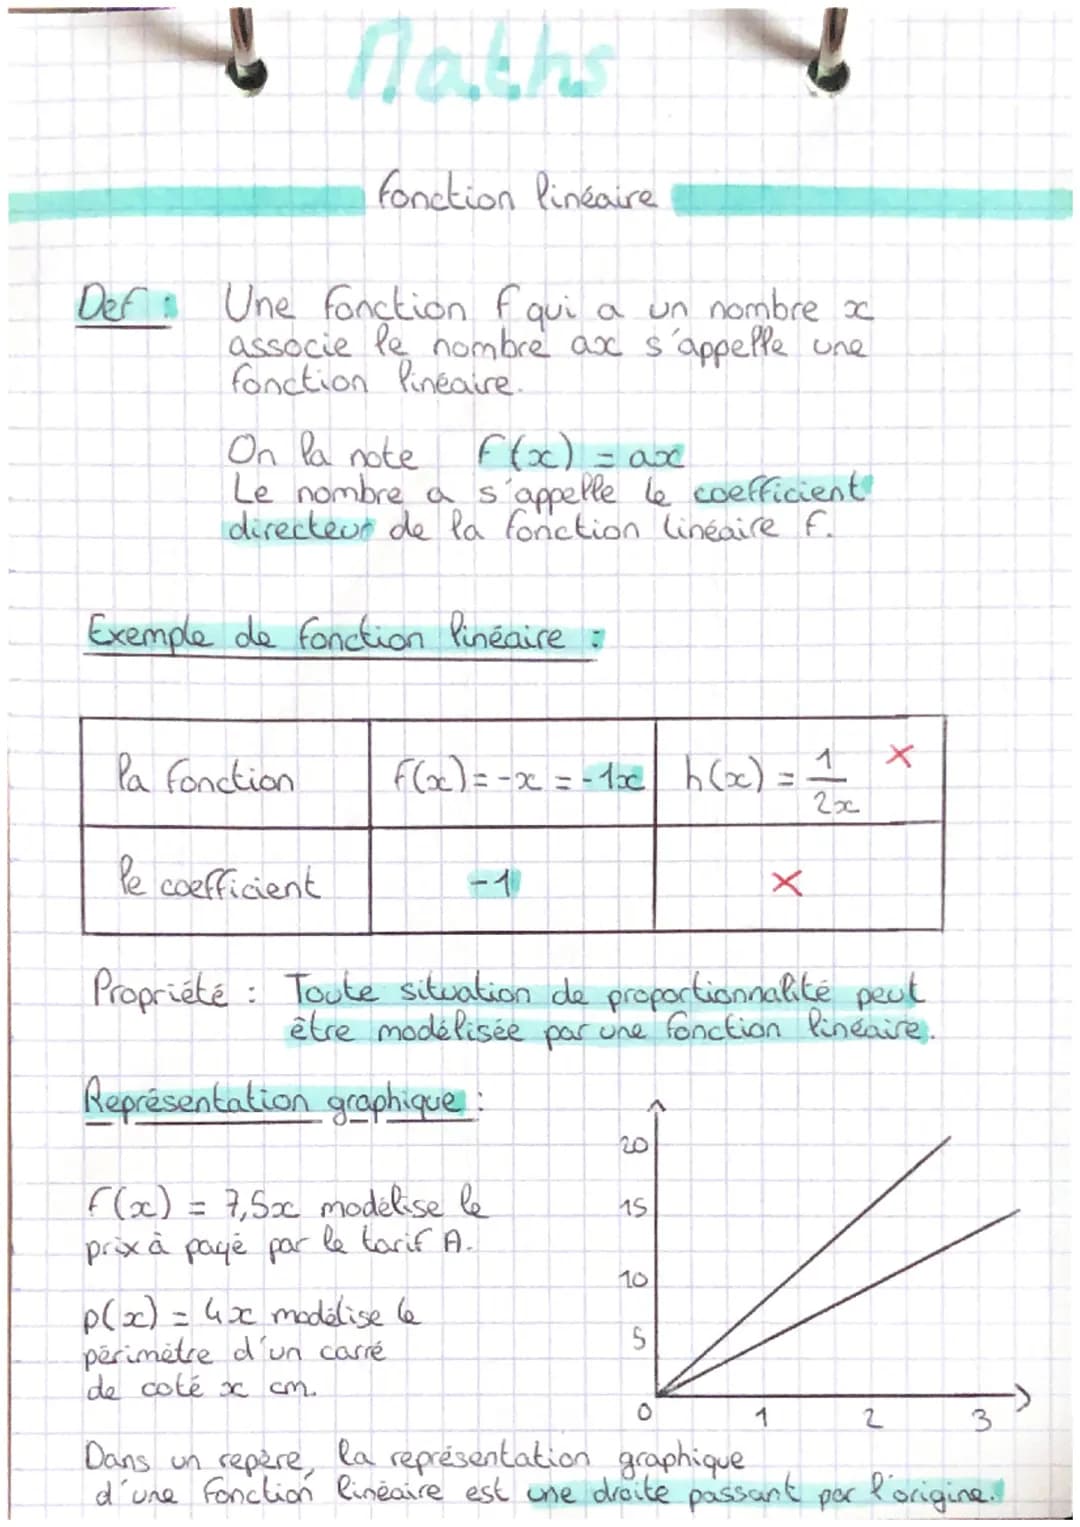 Maths
fonction linéaire
Def : Une fonction f qui a un nombre x
associe le nombre ax s'appelle une
fonction linéaire.
On la note f(x) = ax
Le nombre a s'appelle le coefficient
directeur de la fonction linéaire f.
Exemple de fonction linéaire :
la fonction f(x) = -x = -1x h(x) = 1/2x ×
le coefficient -1 ×
Propriété : Toute situation de proportionnalité peut
être modélisée par une fonction linéaire.
Représentation graphique :
f(x) = 7,5x modélise le
prix à payé par le tarif A.
p(x) = 4x modélise le
périmètre d'un carré
de coté x cm.
20
15
10
5
0 1 2 3
Dans un repère, la représentation graphique
d'une fonction linéaire est une droite passant par l'origine.